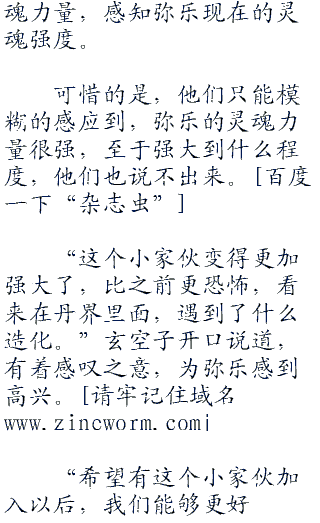 魂力量，感知弥乐现在的灵
魂强度。
可惜的是，他们只能模
糊的感应到，弥乐的灵魂力
量很强，至于强大到什么程
度，他们也说不出来。[百度
一下“杂志虫”]
“这个小家伙变得更加
强大了，比之前更恐怖，看
来在丹界里面，遇到了什么
造化。”玄空子开口说道，
有着感叹之意，为弥乐感到
高兴。[请牢记住域名
www.zincworm.com|
“希望有这个小家伙加
入以后，我们能够更好